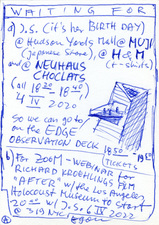 WAITING FOR
a) J.S. (it's her BIRTHDAY)
@ Hudson Yards Mall @ MUJI
(Japanese store), @ H&M
(T-shirts)
and @ NEUHAUS
CHOCLATS
4 IV 2020
so we can go to
on the EDGE
OBSERVATION DECK
TICKETS
b) For ZOOM-WEBINAR for
RICHARD KROEHLINGS FILM
"AFTER" w/ the Los Angeles
Holocaust Museum to start
@ 319 NYC